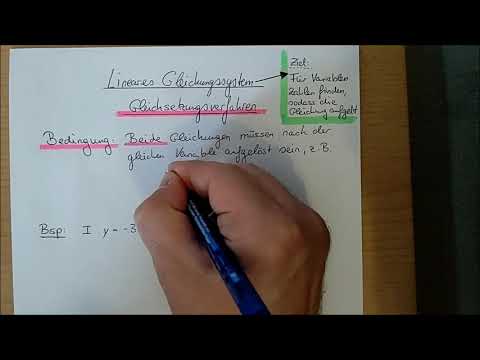 Lineares Gleichungssystem
Gleichsetzungsverfahren
Ziel:
Für Variablen
Zahlen finden,
sodass die
Gleichung aufgeht
Bedingung: Beide Gleichungen müssen nach der
gleichen Variable aufgelöst sein, z.B.
Bsp: I y = -3